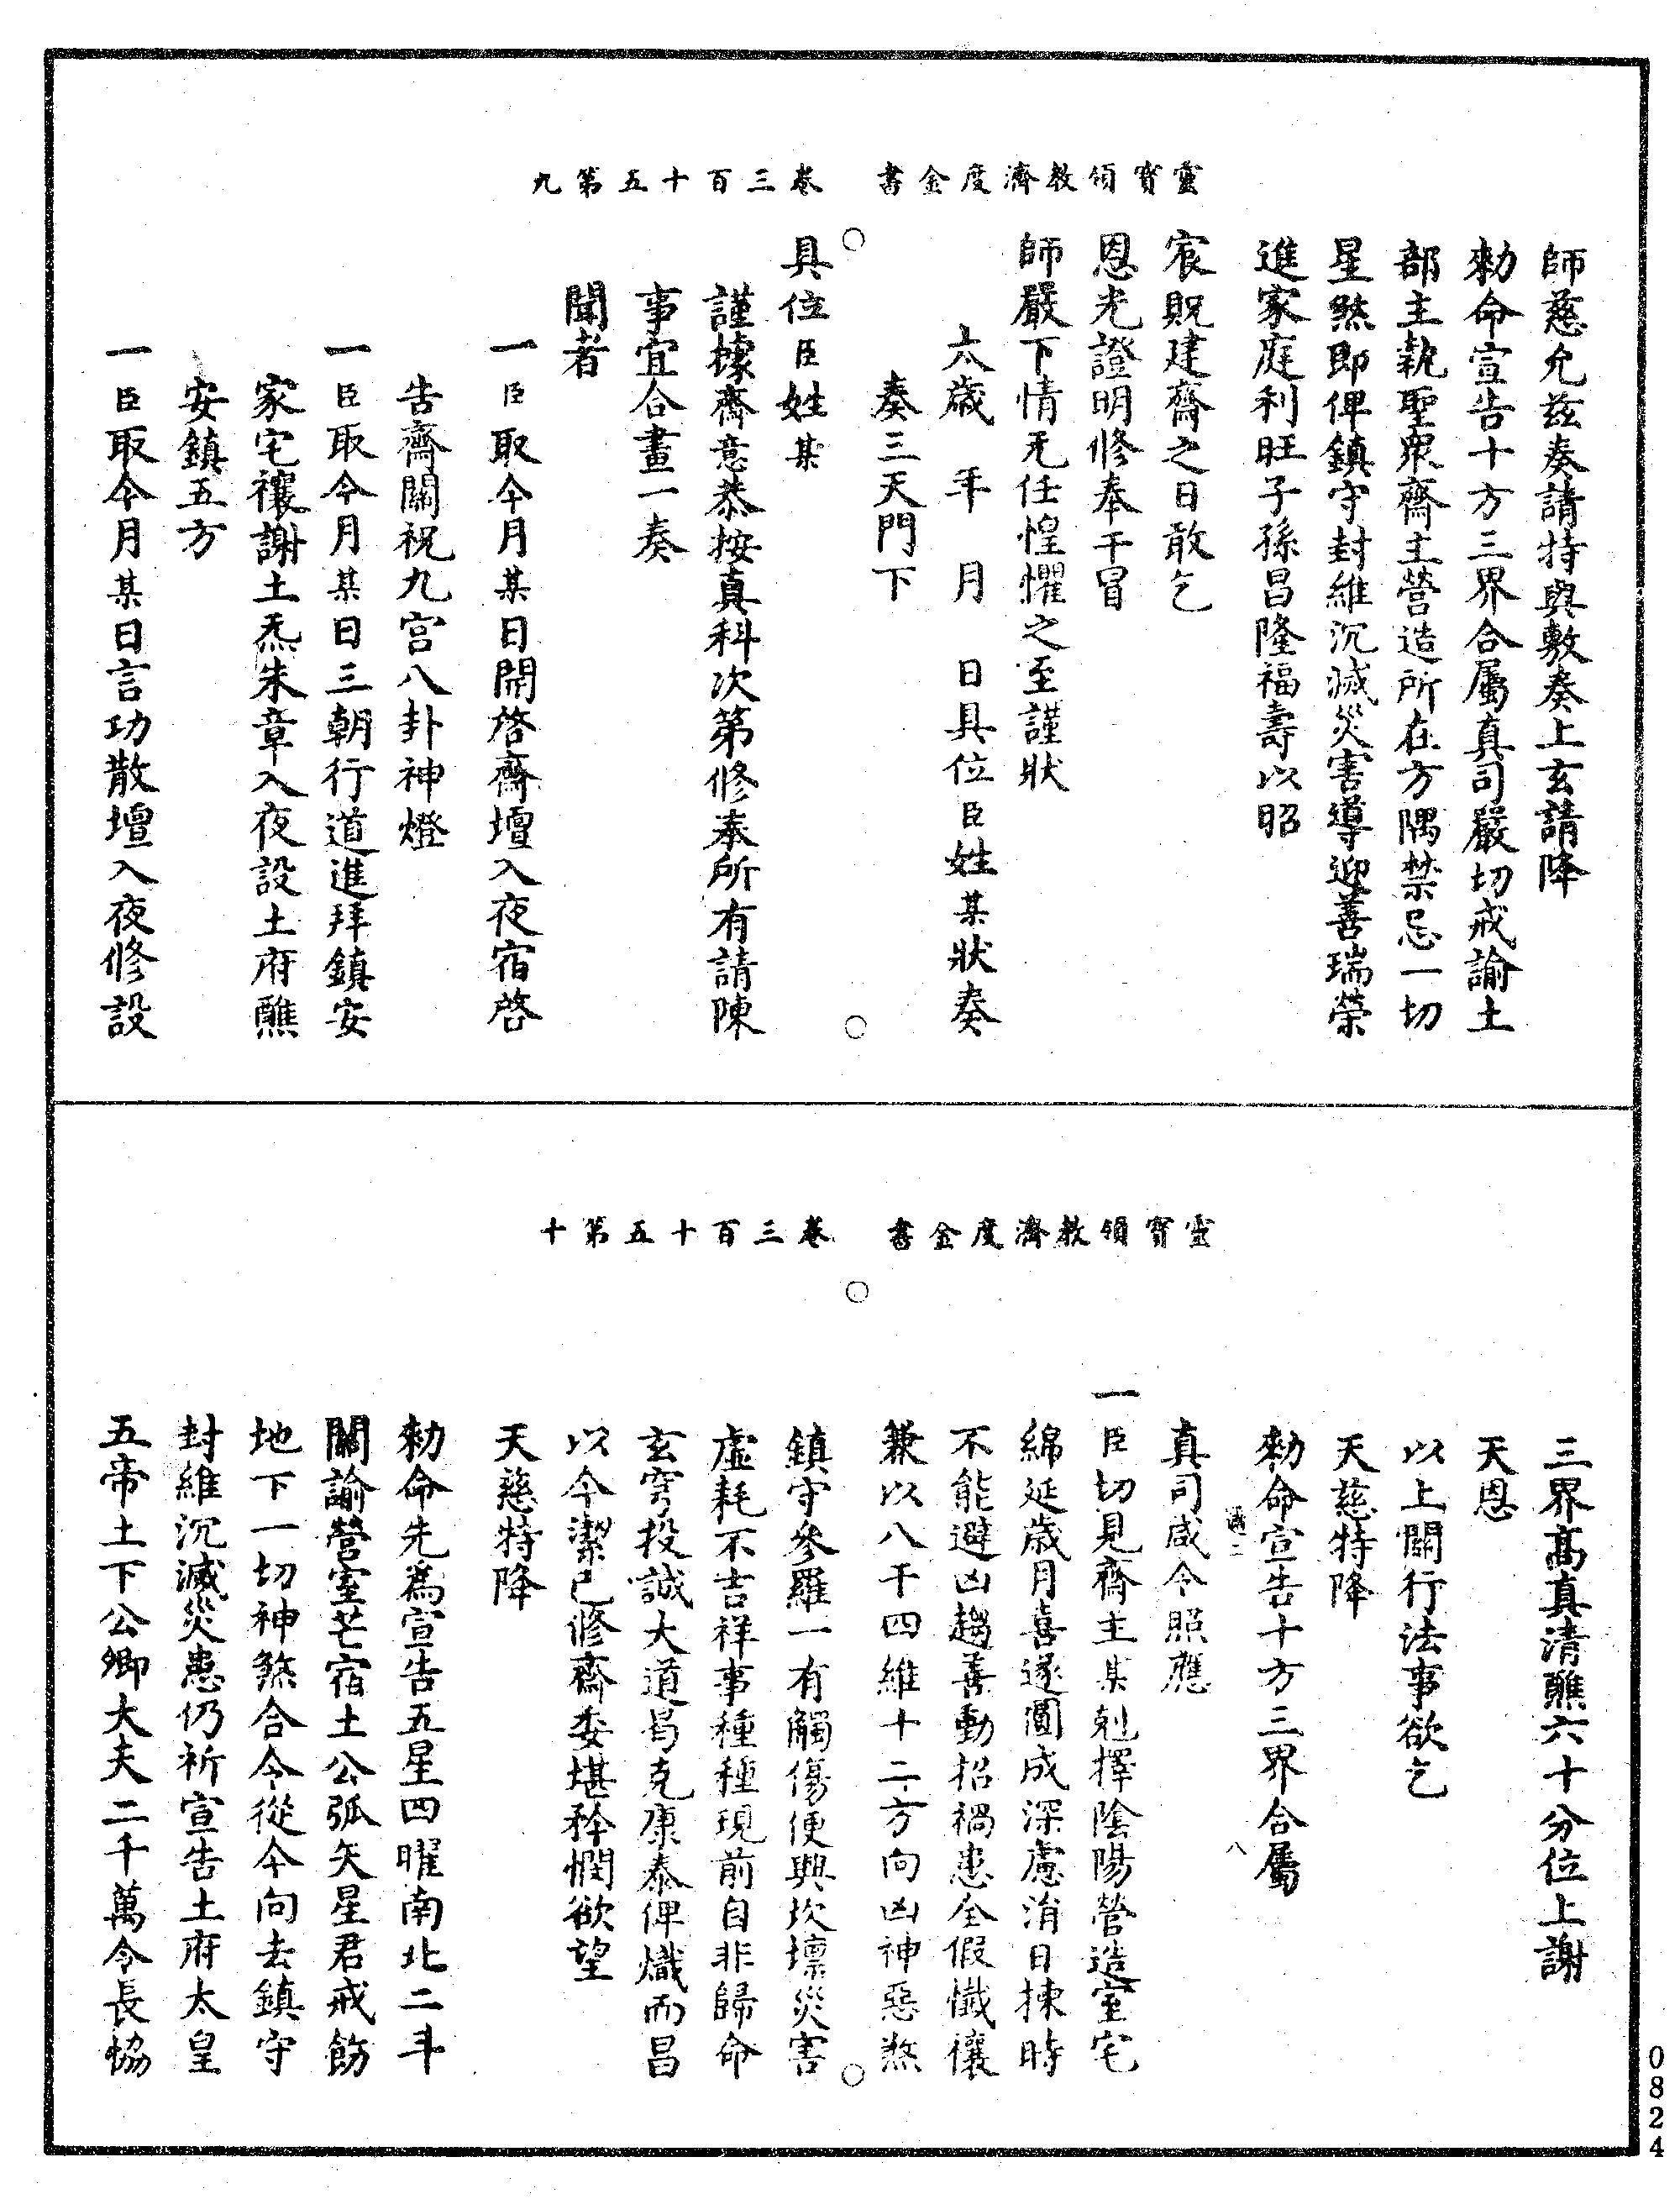 靈寶領教濟度金書　卷三百十五第九
師慈允茲奏請特與敷奏上玄請降
勑命宣告十方三界合屬真司嚴切戒諭土
部主執聖衆齋主營造所在方隅禁忌一切
星煞即俾鎮守封維沉滅災害導迎善瑞榮
進家庭利旺子孫昌隆福壽以昭
宸貺建齋之日敢乞
恩光證明修奉干冒
師嚴下情无任惶懼之至謹狀
太歲　年　月　日具位臣姓某狀奏
奏三天門下
具位臣姓某
謹據齋意恭按真科次第修奉所有請陳
事宜合畫一奏
聞者
一臣取今月某日開啓齋壇入夜宿啓
告齋關祝九宮八卦神燈
一臣取今月某日三朝行道進拜鎮安
家宅禳謝土炁朱章入夜設土府醮
安鎮五方
一臣取今月某日言功散壇入夜修設
靈寶領教濟度金書　卷三百十五第十
三界高真清醮六十分位上謝
天恩
以上關行法事欲乞
天慈特降
勑命宣告十方三界合屬
真司咸令照應
一臣切見齋主某剋擇陰陽營造室宅
綿延歲月喜遂圓成深慮涓日揀時
不能避凶趨善動招禍患全假懺禳
兼以八干四維十二方向凶神惡煞
鎮守參羅一有觸傷便興坎壈災害
虛耗不吉祥事種種現前自非歸命
玄穹投誠大道曷克康泰俾熾而昌
以今潔已修齋委堪矜憫欲望
天慈特降
勑命先爲宣告五星四曜南北二斗
關諭營室芒宿土公弧矢星君戒飭
地下一切神煞合令從今向去鎮守
封維沉滅災患仍祈宣告土府太皇
五帝土下公卿大夫二千萬令長恊
八
0824